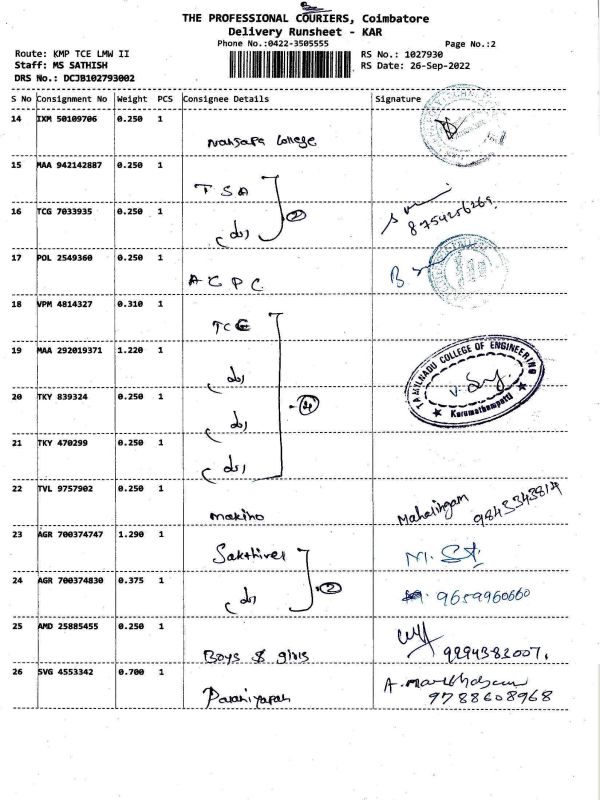 THE PROFESSIONAL COURIERS, Coimbatore
Delivery Runsheet - KAR
Phone No.:0422-3505555
Page No.:2
Route: KMP TCE LMW II
RS No.: 1027930
Staff: MS SATHISH
RS Date: 26-Sep-2022
DRS No.: DCJB102793002
S No Consignment No Weight PCS Consignee Details Signature
14 IXM 50109706 0.250 1
College
15 MAA 942142887 0.250 1
TSA
16 TCG 7033935 0.250 1
(do)
2
8754256269
17 POL 2549360 0.250 1
AGPC
18 VPM 4814327 0.310 1
TCE
19 MAA 292019371 1.220 1
(do)
TAMILNADU COLLEGE OF ENGINEERING
Karumathampatti
20 TKY 839324 0.250 1
(do)
4
21 TKY 470299 0.250 1
(do)
22 TVL 9757902 0.250 1
makino
Mahalingam
9843343814
23 AGR 700374747 1.290 1
Sakthivel
24 AGR 700374830 0.375 1
(do)
2
9659960660
25 AMD 25885455 0.250 1
Boys & girls
9994383007.
26 SVG 4553342 0.700 1
9788608968